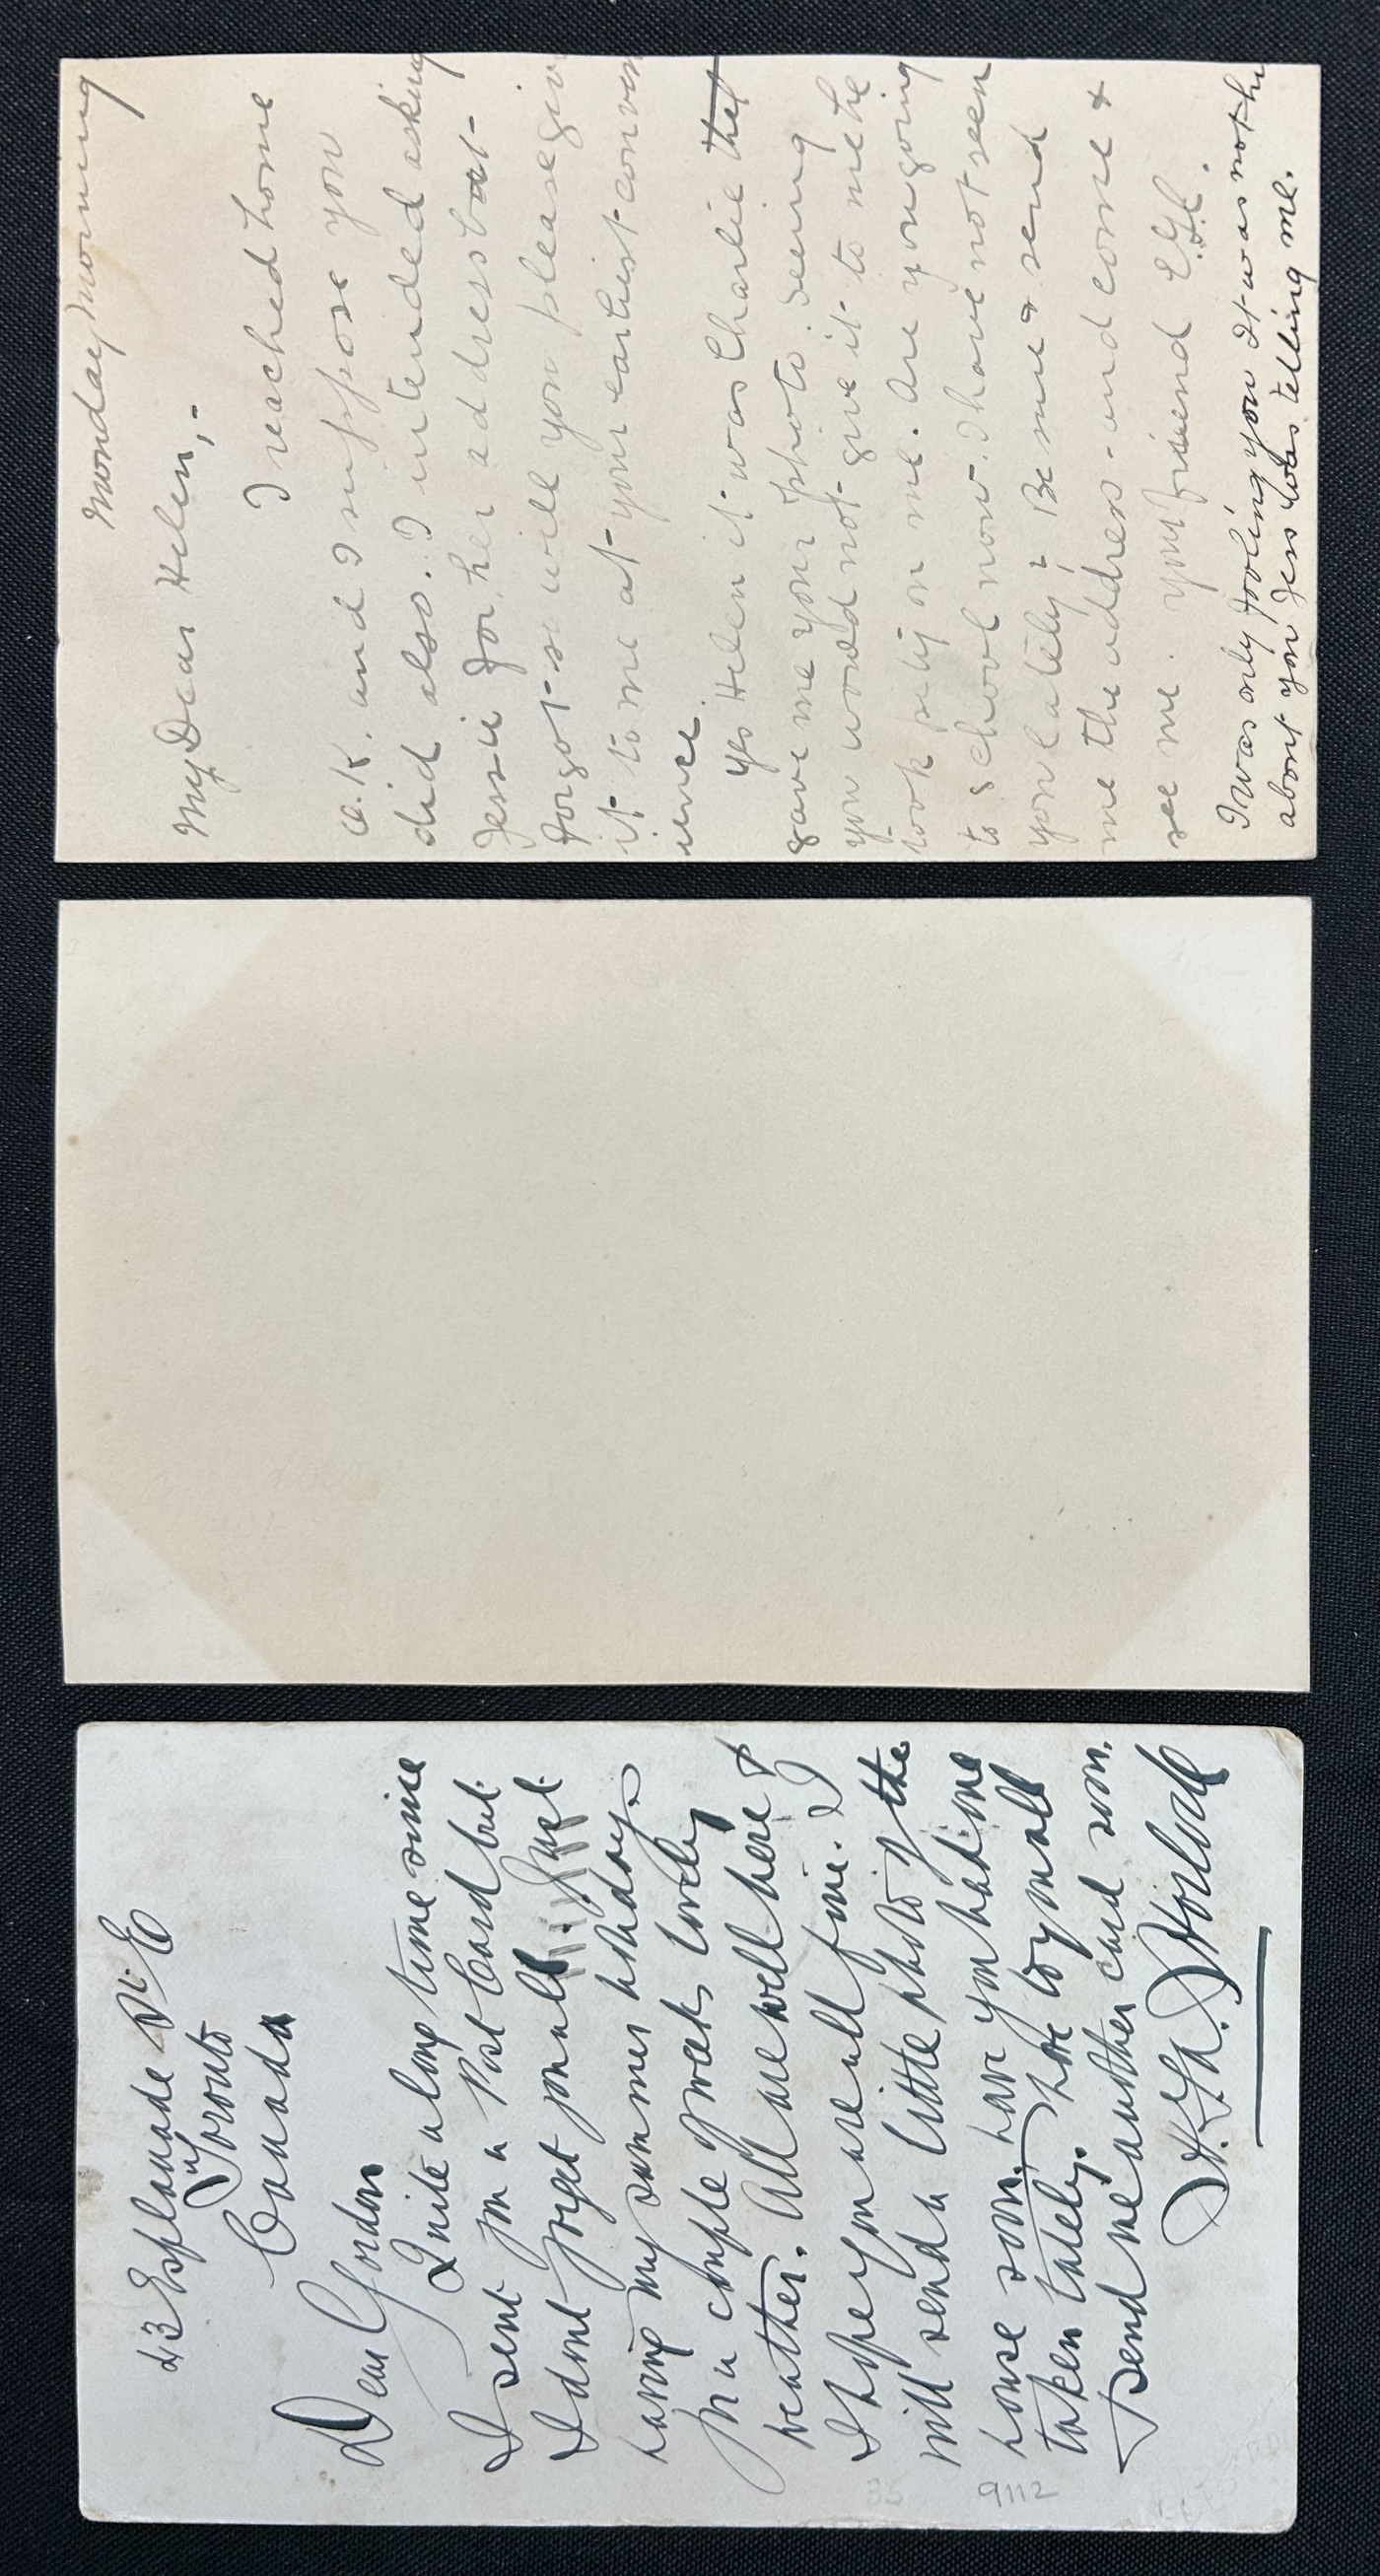 Monday Morning
My Dear Helen,-
I reached home
O.K. and I suppose you
did also. I intended asking
Jessie for her address but-
forgot-so will you please give
it to me at-your earliest-conven
ience.
Yes Helen it-was Charlie that
gave me your photo. Seeing
you would not-give it-to me he
took pity on me. Are you going
to school now. I have not seen
you lately. Be sure & send
me the address-and come &
see me. your friend
I was only fooling you It was not he
about you Jess was telling me.
43 Esplanade St. E
Toronto
Canada
Dear Gordon
Quite a long time since
I sent you a Post Card but
I dont forget you all. Just
having my summer holidays
for a couple of weeks lovely
weather. All are well here &
I hope you are all fine. I
will send a little photo of the
house soon. have you had one
taken lately. love to you all
Send me another card soon.
Horlock
9112